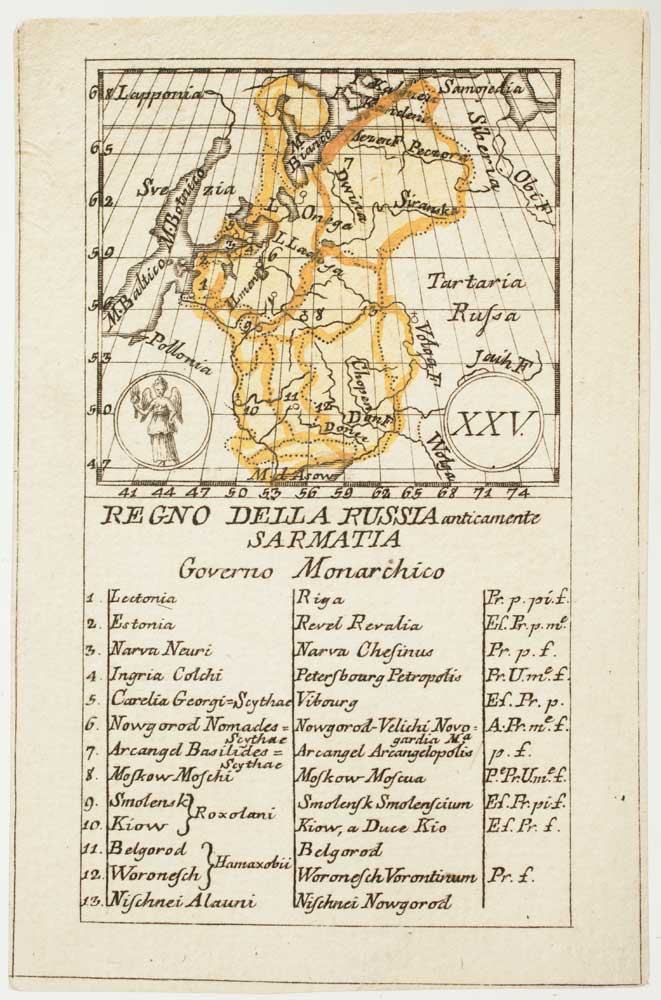 68 Lapponia
65
62
59
56
53
50
47
Samojedia
Kalnues
Kandeni
Siberia
Obi F
M. Bianco
Sezen F
Peczora
7
Dwina
Siranski
Svezia
M. Botnico
L. Onega
L. Ladoga
Ilmen
M. Baltico
Pollonia
Tartaria
Russa
Volga F
Jaih F
Chopen
Don F
Donec
Wolga
M. d Asow
1
2
3
4
5
6
8
9
10
11
12
13
XXV.
41 44 47 50 53 56 59 62 65 68 71 74
REGNO DELLA RUSSIA anticamente
SARMATIA
Governo Monarchico
1. Lectonia Riga Pr. p. pi. f.
2. Estonia Revel Revalia Ef. Pr. p. mᵉ.
3. Narva Neuri Narva Chesinus Pr. p. f.
4. Ingria Colchi Petersbourg Petropolis Pr. U. mᵉ. f.
5. Carelia Georgi=Scythae Vibourg Ef. Pr. p.
6 Nowgorod Nomades=Scythae Nowgorod-Velichi Novo=gardia Mᵃ A. Pr. mᵉ. f.
7. Arcangel Basilides=Scythae Arcangel Arcangelopolis p. f.
8. Moskow-Moschi Moskow-Moscua Pᵉ Pr U mᵉ. f.
9. Smolensk Roxolani Smolensk Smolenscium Ef. Pr. pi. f.
10. Kiow Kiow, a Duce Kio Ef. Pr. f.
11. Belgorod Hamaxobii Belgorod
12. Woronesch Woronesch Vorontinum Pr. f.
13. Nischnei Alauni Nischnei Nowgorod